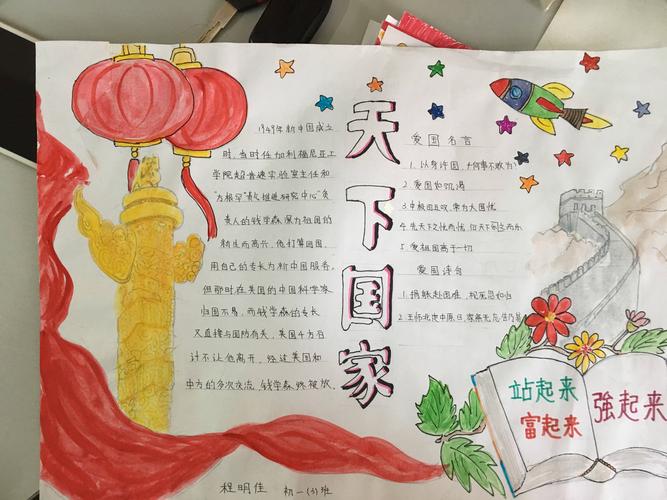 天下国家
1949年新中国成立
时,当时任加利福尼亚工
学院超音速实验室主任和
"古根罕喷气推进研究中心"负
责人的钱学森深为祖国的
新生而高兴,他打算回国,
用自己的专长为新中国服务。
但那时在美国的中国科学家
归国不易,而钱学森的专长
又直接与国防有关,美国千方百
计不让他离开。经过美国和
中方的多次交流,钱学森终被放。
爱国名言
1. 以身许国,何事不敢为?
2. 爱国如饥渴
3. 位卑
4. 先天下之忧而忧,后天下之乐而乐
5. 爱祖国高于一切
爱国诗句
1. 捐躯赴国难,视死忽如归
2. 王师北定中原日,家祭无忘告乃翁
站起来
富起来
強起来
程明佳 初一(3)班